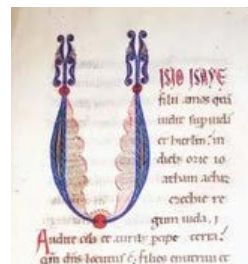 ISIO ISAYE
filii amos quā
uidit sup iudā
et hierlm in
dieb; ozie io
athan achaz
ezechie re
gum iuda,
Audite celi et auribꝰ pcipe terra.
qm dns locutus ē. filios enutriui et